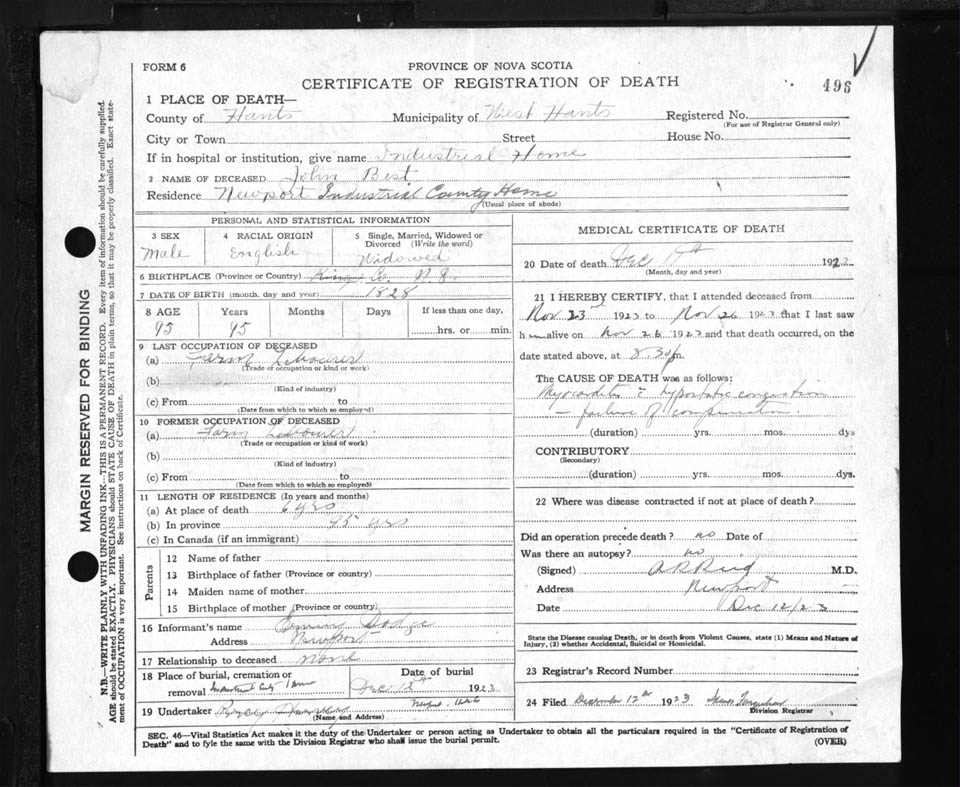 FORM 6
PROVINCE OF NOVA SCOTIA
CERTIFICATE OF REGISTRATION OF DEATH
496
1 PLACE OF DEATH—
County of Hants Municipality of West Hants Registered No.
(For use of Registrar General only)
City or Town Street House No.
If in hospital or institution, give name Industrial Home
2 NAME OF DECEASED John Best
Residence Newport Industrial County Home
(Usual place of abode)
PERSONAL AND STATISTICAL INFORMATION
3 SEX 4 RACIAL ORIGIN 5 Single, Married, Widowed or Divorced (Write the word)
Male English Widowed
6 BIRTHPLACE (Province or Country) Kings Co. N.S.
7 DATE OF BIRTH (month, day and year) 1828
8 AGE Years Months Days If less than one day,
95 95 hrs. or min.
9 LAST OCCUPATION OF DECEASED
(a) Farm Labourer
(Trade or occupation or kind or work)
(b)
(Kind of industry)
(c) From to
(Date from which to which so employed)
10 FORMER OCCUPATION OF DECEASED
(a) Farm Labourer
(Trade or occupation or kind of work)
(b)
(Kind of industry)
(c) From to
(Date from which to which so employed)
11 LENGTH OF RESIDENCE (In years and months)
(a) At place of death 6 yrs
(b) In province 95 yrs
(c) In Canada (if an immigrant)
Parents
12 Name of father
13 Birthplace of father (Province or country)
14 Maiden name of mother
15 Birthplace of mother (Province or country)
16 Informant's name Dodge
Address Newport
17 Relationship to deceased none
18 Place of burial, cremation or removal Date of burial
Industrial Home Dec 1923
19 Undertaker
(Name and Address)
MEDICAL CERTIFICATE OF DEATH
20 Date of death Dec 1923
(Month, day and year)
21 I HEREBY CERTIFY, that I attended deceased from
Nov 23 1923 to Nov 26 1923 that I last saw
him alive on Nov 26 1923 and that death occurred, on the
date stated above, at 8.30 p m.
The CAUSE OF DEATH was as follows:
Myocarditis c̄ hypostatic congestion
— failure of compensation.
(duration) yrs. mos. dys
CONTRIBUTORY
(Secondary)
(duration) yrs. mos. dys.
22 Where was disease contracted if not at place of death?
Did an operation precede death? no Date of
Was there an autopsy? no
(Signed) M.D.
Address Newport
Date Dec 12/23
State the Disease causing Death, or in death from Violent Causes, state (1) Means and Nature of
Injury, (2) whether Accidental, Suicidal or Homicidal.
23 Registrar's Record Number
24 Filed December 12th 1923
Division Registrar
SEC. 46—Vital Statistics Act makes it the duty of the Undertaker or person acting as Undertaker to obtain all the particulars required in the "Certificate of Registration of
Death" and to fyle the same with the Division Registrar who shall issue the burial permit.
(OVER)
MARGIN RESERVED FOR BINDING
N.B.—WRITE PLAINLY WITH UNFADING INK—THIS IS A PERMANENT RECORD. Every item of information should be carefully supplied.
AGE should be stated EXACTLY. PHYSICIANS should STATE CAUSE OF DEATH in plain terms, so that it may be properly classified. Exact state-
ment of OCCUPATION is very important. See instructions on back of Certificate.